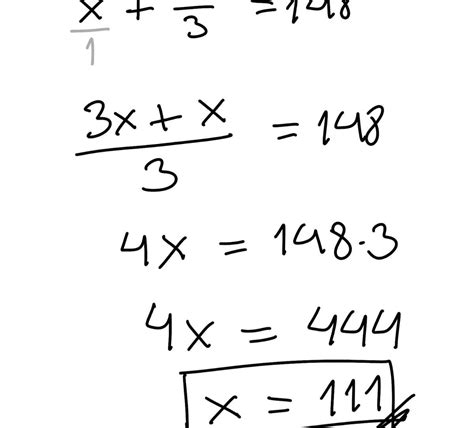 x/1 + /3 = 148
(3x + x)/3 = 148
4x = 148·3
4x = 444
x = 111